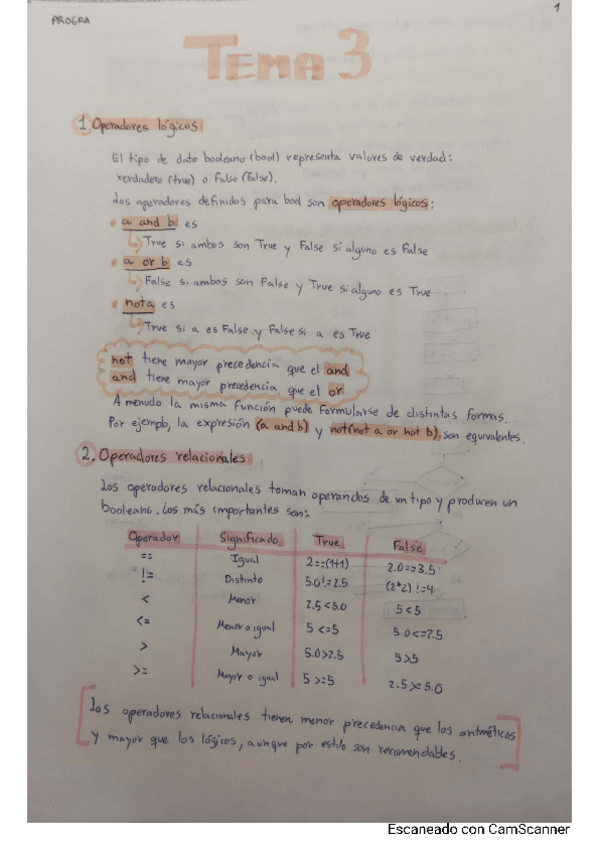 PROGRA
1
TEMA 3
1. Operadores lógicos
El tipo de dato booleano (bool) representa valores de verdad:
verdadero (true) o Falso (False).
Los operadores definidos para bool son operadores lógicos:
a and b es
True si ambos son True y False si alguno es False
a or b es
False si ambos son False y True si alguno es True
not a es
True si a es False y False si a es True
not tiene mayor precedencia que el and
and tiene mayor precedencia que el or
A menudo la misma función puede formularse de distintas formas.
Por ejemplo, la expresión (a and b) y not(not a or not b), son equivalentes.
2. Operadores relacionales
Los operadores relacionales toman operandos de un tipo y producen un
booleano. Los más importantes son:
Operador Significado True False
== Igual 2==(1+1) 2.0==3.5
!= Distinto 5.0!=2.5 (2*2) !=4
< Menor 2.5<5.0 5<5
<= Menor o igual 5<=5 5.0<=2.5
> Mayor 5.0>2.5 5>5
>= Mayor o igual 5>=5 2.5>=5.0
Los operadores relacionales tienen menor precedencia que los aritméticos
y mayor que los lógicos, aunque por estilo son recomendables.
Escaneado con CamScanner